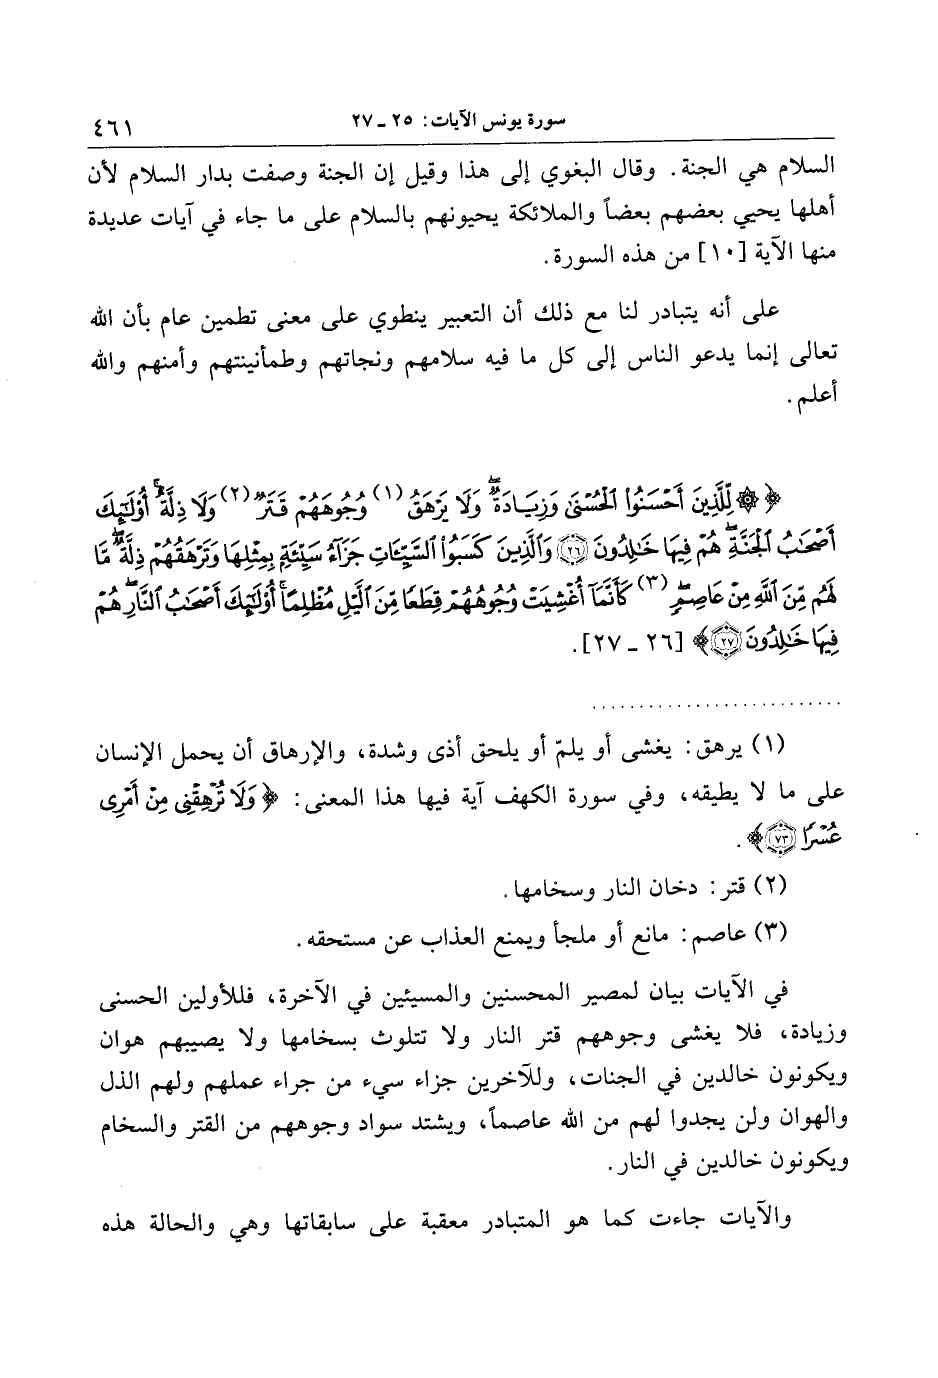 سورة يونس الآيات: ٢٥ ـ ٢٧ ٤٦١
السلام هي الجنة. وقال البغوي إلى هذا وقيل إن الجنة وصفت بدار السلام لأن
أهلها يحيي بعضهم بعضاً والملائكة يحيونهم بالسلام على ما جاء في آيات عديدة
منها الآية [١٠] من هذه السورة.
على أنه يتبادر لنا مع ذلك أن التعبير ينطوي على معنى تطمين عام بأن الله
تعالى إنما يدعو الناس إلى كل ما فيه سلامهم ونجاتهم وطمأنينتهم وأمنهم والله
أعلم.
﴿ ۞ لِّلَّذِينَ أَحْسَنُوا۟ ٱلْحُسْنَىٰ وَزِيَادَةٌ ۖ وَلَا يَرْهَقُ (١) وُجُوهَهُمْ قَتَرٌ (٢) وَلَا ذِلَّةٌ ۚ أُو۟لَٰٓئِكَ
أَصْحَٰبُ ٱلْجَنَّةِ ۖ هُمْ فِيهَا خَٰلِدُونَ ٢٦ وَٱلَّذِينَ كَسَبُوا۟ ٱلسَّيِّـَٔاتِ جَزَآءُ سَيِّئَةٍۭ بِمِثْلِهَا وَتَرْهَقُهُمْ ذِلَّةٌ ۖ مَّا
لَهُم مِّنَ ٱللَّهِ مِنْ عَاصِمٍ ۖ (٣) كَأَنَّمَآ أُغْشِيَتْ وُجُوهُهُمْ قِطَعًا مِّنَ ٱلَّيْلِ مُظْلِمًا ۚ أُو۟لَٰٓئِكَ أَصْحَٰبُ ٱلنَّارِ ۖ هُمْ
فِيهَا خَٰلِدُونَ ٢٧ ﴾ [٢٦ ـ ٢٧].
...........................
(١) يرهق: يغشى أو يلمّ أو يلحق أذى وشدة، والإرهاق أن يحمل الإنسان
على ما لا يطيقه، وفي سورة الكهف آية فيها هذا المعنى: ﴿ وَلَا تُرْهِقْنِى مِنْ أَمْرِى
عُسْرًا ٧٣ ﴾.
(٢) قتر: دخان النار وسخامها.
(٣) عاصم: مانع أو ملجأ ويمنع العذاب عن مستحقه.
في الآيات بيان لمصير المحسنين والمسيئين في الآخرة، فللأولين الحسنى
وزيادة، فلا يغشى وجوههم قتر النار ولا تتلوث بسخامها ولا يصيبهم هوان
ويكونون خالدين في الجنات، وللآخرين جزاء سيء من جراء عملهم ولهم الذل
والهوان ولن يجدوا لهم من الله عاصماً، ويشتد سواد وجوههم من القتر والسخام
ويكونون خالدين في النار.
والآيات جاءت كما هو المتبادر معقبة على سابقاتها وهي والحالة هذه